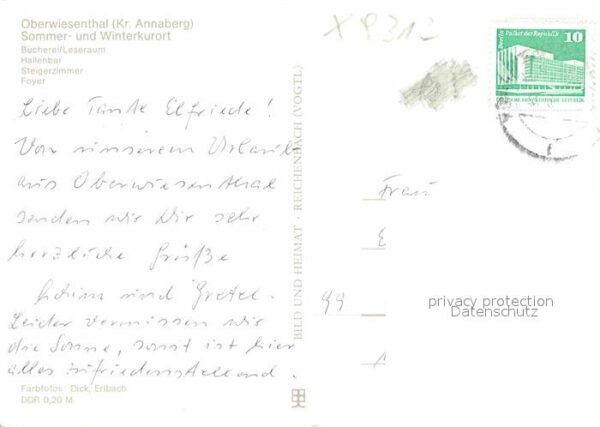 Oberwiesenthal (Kr. Annaberg)
Sommer- und Winterkurort
Bücherei/Leseraum
Hallenbar
Steigerzimmer
Foyer
Liebe Tante Elfriede!
Von unserem Urlaub
aus Oberwiesenthal
senden wir Dir sehr
herzliche Grüße
und Gretel.
Leider vermissen wir
die Sonne, sonst ist hier
alles zufriedenstellend.
Farbfotos: Dick, Erlbach
DDR 0,20 M
BILD UND HEIMAT · REICHENBACH (VOGTL)
X 9312
Berlin Palast der Republik
10
Frau
E
99
privacy protection
Datenschutz